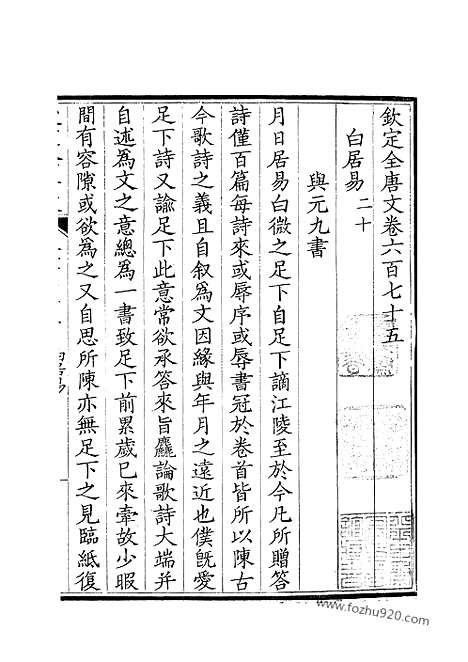 欽定全唐文卷六百七十五
白居易二十
與元九書
月日居易白微之足下自足下謫江陵至於今凡所贈答
詩僅百篇每詩來或辱序或辱書冠於卷首皆所以陳古
今歌詩之義且自叙為文因緣與年月之遠近也僕旣愛
足下詩又諭足下此意常欲承答來旨麤論歌詩大端并
自述為文之意總為一書致足下前累歲已來牽故少暇
間有容隙或欲為之又自思所陳亦無足下之見臨紙復
www.fozhu920.com